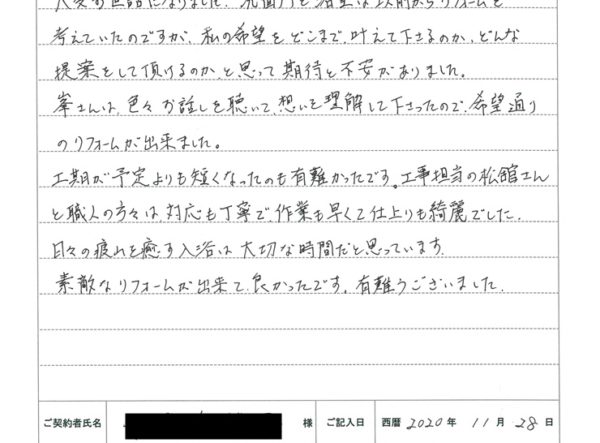 大変お世話になりました。洗面所と浴室は以前からリフォームを
考えていたのですが、私の希望をどこまで叶えて下さるのか、どんな
提案をして頂けるのか、と思って期待と不安がありました。
峯さんは、色々お話しを聴いて、想いを理解して下さったので、希望通り
のリフォームが出来ました。
工期が予定よりも短くなったのも有難かったです。工事担当の松館さん
と職人の方々は、対応も丁寧で、作業も早くて仕上りも綺麗でした。
日々の疲れを癒す入浴は大切な時間だと思っています。
素敵なリフォームが出来て、良かったです。有難うございました。
ご契約者氏名 様 ご記入日 西暦 2020 年 11 月 28 日